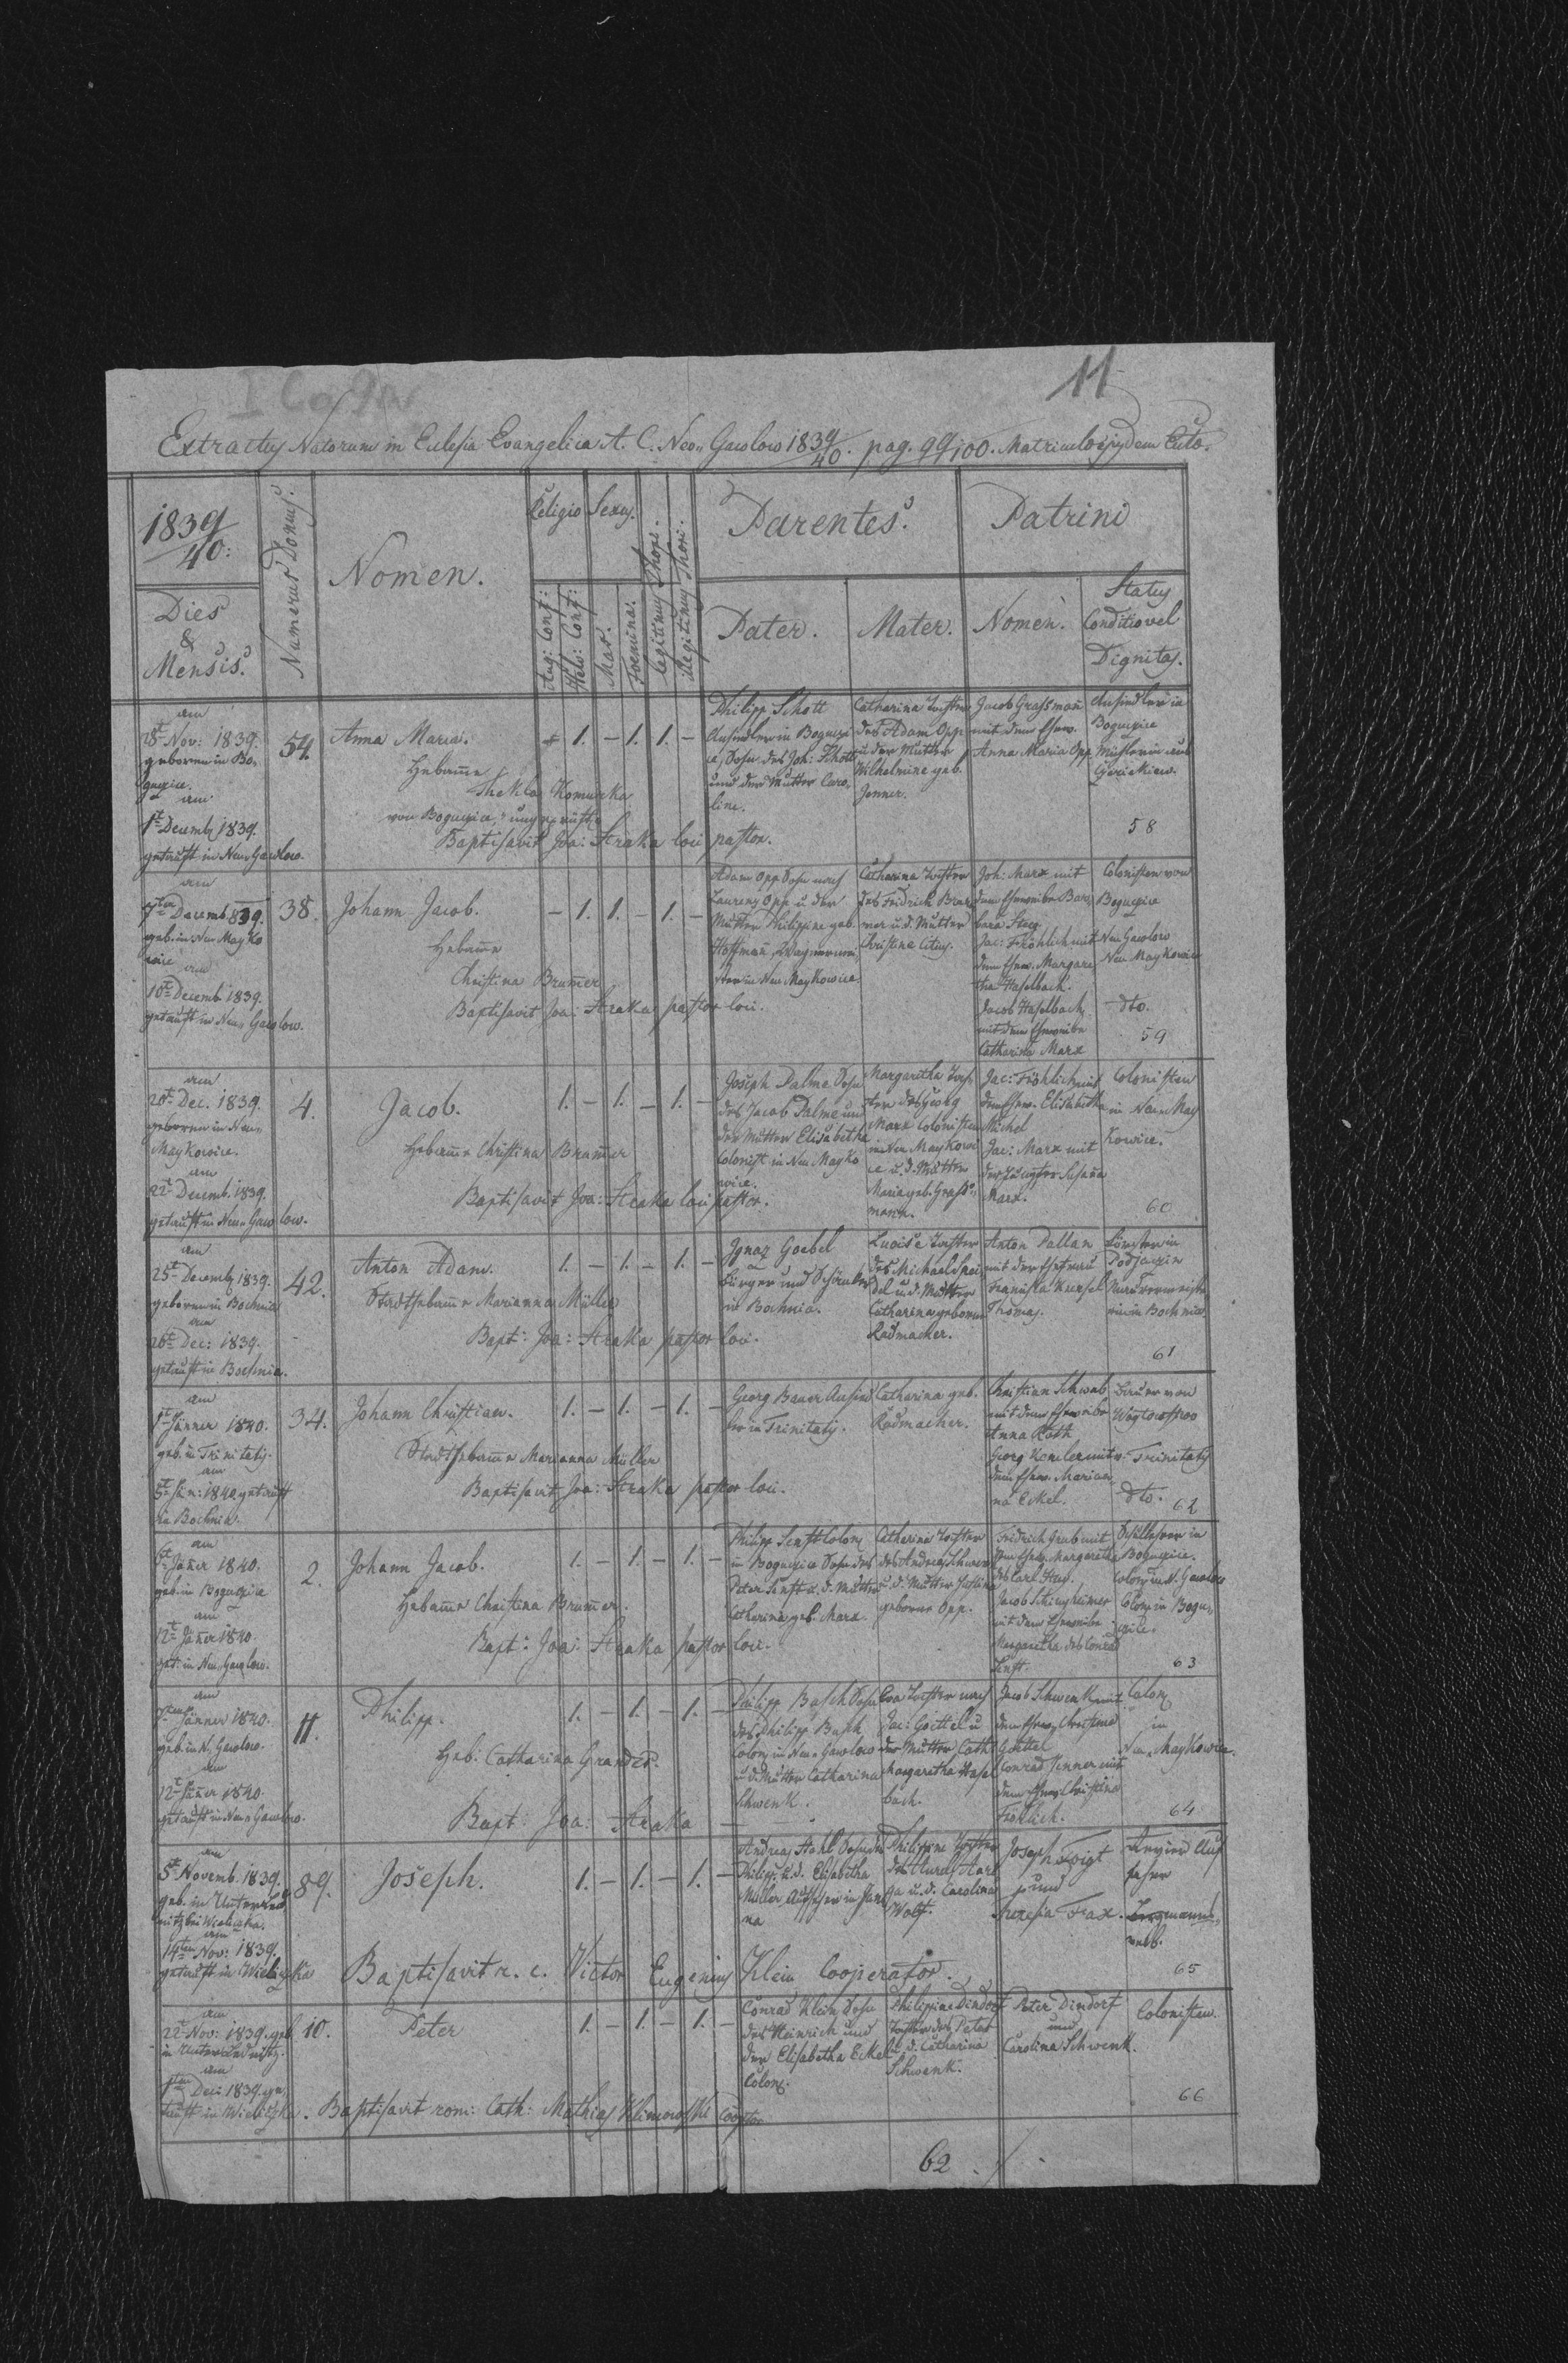 11
Extractus Natorum in Eclesia Evangelica A. C. Neo„ Gawlow 1839/40. pag. 99/100. Matriculae ejusdem
1839/40:
Dies
&
Mensis.
Numerus Domus.
Nomen.
Religio
Aug: Conf:
Helv: Conf:
Sexus.
Mas.
Foemina.
legitimus Thori.
illegitimus Thori.
Parentes.
Pater.
Mater.
Patrini
Nomen.
Status
Conditio vel
Dignitas.
am
28t Nov: 1839.
geboren in Bo„
gucice.
am
1t Decemb 1839.
getauft in Neu„ Gawlow.
54.
Anna Maria.
Hebamme
Thekla Komurka
von Bogucice, ungeprüft
Baptisavit Joa: Straka loci pastor.
1. – 1. 1. –
Philipp Schott
Ansiedler in Boguci
ce, Sohn des Joh: Schott
und der Mutter Caro„
line.
Catharina Tochter
des Adam Opp
u der Mutter
Wilhelmine geb.
Jenner.
Jacob Grassmann
mit dem Ehew.
Anna Maria Opp
Ansiedler in
Bogucice
58
am
7ten Decemb 1839.
geb. in Neu MayKo
wice
am
10t Decemb 1839.
getauft in Neu„ Gawlow.
38.
Johann Jacob.
Hebamme
Christina Brummer
Baptisavit Joa: Straka pastor loci.
– 1. 1. – 1. –
Adam Opp Sohn nach
Laurenz Opp u. der
Mutter Philippine geb.
Hoffmann, Wagnermei„
ster in Neu MayKowice
Catharina Tochter
des Fridrich Brum
mer u. d. Mutter
Christina
Joh: Marx mit
dem Eheweibe Bar„
bara
Jac: Fröhlich mit
dem Ehew. Margare
tha Haselbach.
Jacob Haselbach
mit dem Eheweibe
Catharina Marx
Colonisten von
Bogucice
Neu Gawlow
Neu MayKowice
dto.
59
am
20t Dec. 1839.
geboren in Neu„
MayKowice.
am
22t Decemb. 1839.
getauft in Neu„ Gawlow.
4.
Jacob.
Hebamme Christina Brummer
Baptisavit Joa: Straka loci pastor.
1. – 1. – 1. –
Joseph Dalme Sohn
des Jacob Dalme und
der Mutter Elisabetha
Colonist in Neu MayKo
wice.
Margaretha Toch
ter des Georg
Marx Colonisten
in Neu MayKowi
ce u. d. Mutter
Maria geb. Grass„
mann.
Jac: Fröhlich mit
dem Ehew. Elisabetha
Michel
Jac: Marx mit
der Jungfer Susanna
Marx.
Colonisten
in Neu May
Kowice.
60
am
25t Decemb 1839.
geboren in Bochnia
am
26t Dec: 1839.
getauft in Bochnia.
42.
Anton Adam.
Stadthebamme Marianna Müller
Bapt: Joa: Straka pastor loci.
1. – 1. – 1. –
Ignaz Goebel
Bürger und
in Bochnia.
Lucise Tochter
des Michael
del u. d. Mutter
Catharina geborene
Radmacher.
Anton Dallan
mit der Ehefrau
Franciska
Thomas.
Förster in
in Bochnia.
61
am
1t Jänner 1840.
geb. in Trinitatis.
am
5t Jän: 1840 getauft
in Bochnia.
34.
Johann Christian.
Stadthebamme Marianna Müller
Baptisavit Joa: Straka pastor loci.
1. – 1. – 1. –
Georg Bauer Ansied
ler in Trinitatis.
Catharina geb.
Radmacher.
Christian Schwab
mit dem Eheweibe
Anna Roth
Georg
dem Ehew. Marian„
na Eckel.
Bauer von
Trinitatis
dto. 62
am
6t Jänner 1840.
geb. in Bogucice
am
12t Jänner 1840.
get: in Neu„ Gawlow.
2.
Johann Jacob.
Hebamme Christina Brummer.
Bapt: Joa: Straka pastor loci.
1. – 1. – 1. –
Philipp Senft Colon
in Bogucice Sohn des
Peter Senft u. d. Mutter
Catharina geb. Marx.
Catharina Tochter
des Andreas
u. d. Mutter Justina
geborne Opp.
Fridrich Grub mit
dem Ehew. Margaretha
des Carl
Jacob
mit dem Eheweibe
Margaretha des Conrad
Senft.
Schullehrer in
Bogucice.
Colon in N. Gawlow
Colon in Bogu„
cice.
63
am
Jänner 1840.
geb. in N. Gawlow.
am
12t Jänner 1840.
getauft in Neu„ Gawlow.
11.
Philipp.
Heb: Catharina Grandes.
Bapt: Joa: Straka
1. – 1. – 1. –
Philipp Busch Sohn
des Philipp Busch
Colon in Neu„ Gawlow
u. d. Mutter Catharina
Schwenk.
Eva Tochter nach
Jac: Goettel u
der Mutter Cath
Margaretha Hasel
bach.
Jacob Schwenk mit
dem Ehew. Christina
Goettel
Conrad Jenner mit
dem Ehew. Christina
Fröhlich.
Colon
in
Neu„ MayKowice.
64
am
5t Novemb. 1839.
geb. in Unter Led
nitz bei Wieliczka.
am
14ten Nov: 1839.
getauft in Wieliczka
89.
Joseph.
Baptisavit r. c. Victor Eugenius Klein Cooperator.
1. – 1. – 1. –
Andreas Stahl Sohn des
Philipp u. d. Elisabetha
Müller, Aufseher in
Philippine Tochter
u. d. Carolina
Wolf.
Joseph Foigt
und
Theresia Frax.
Auf
seher
65
am
22t Nov: 1839. geb.
in Unter Lednitz.
am
1ten Dec: 1839. ge„
tauft in Wieliczka.
10.
Peter
Baptisavit rom: Cath: Mathias KlimowsKi Cooptor
1. – 1. – 1. –
Conrad Klein Sohn
des Heinrich und
der Elisabetha Eckel
Colon.
Philippine Dindorf
Tochter des Peter
u. d. Catharina
Schwenk.
Peter Dindorf
und
Carolina Schwenk.
Colonisten.
66
62 ./.